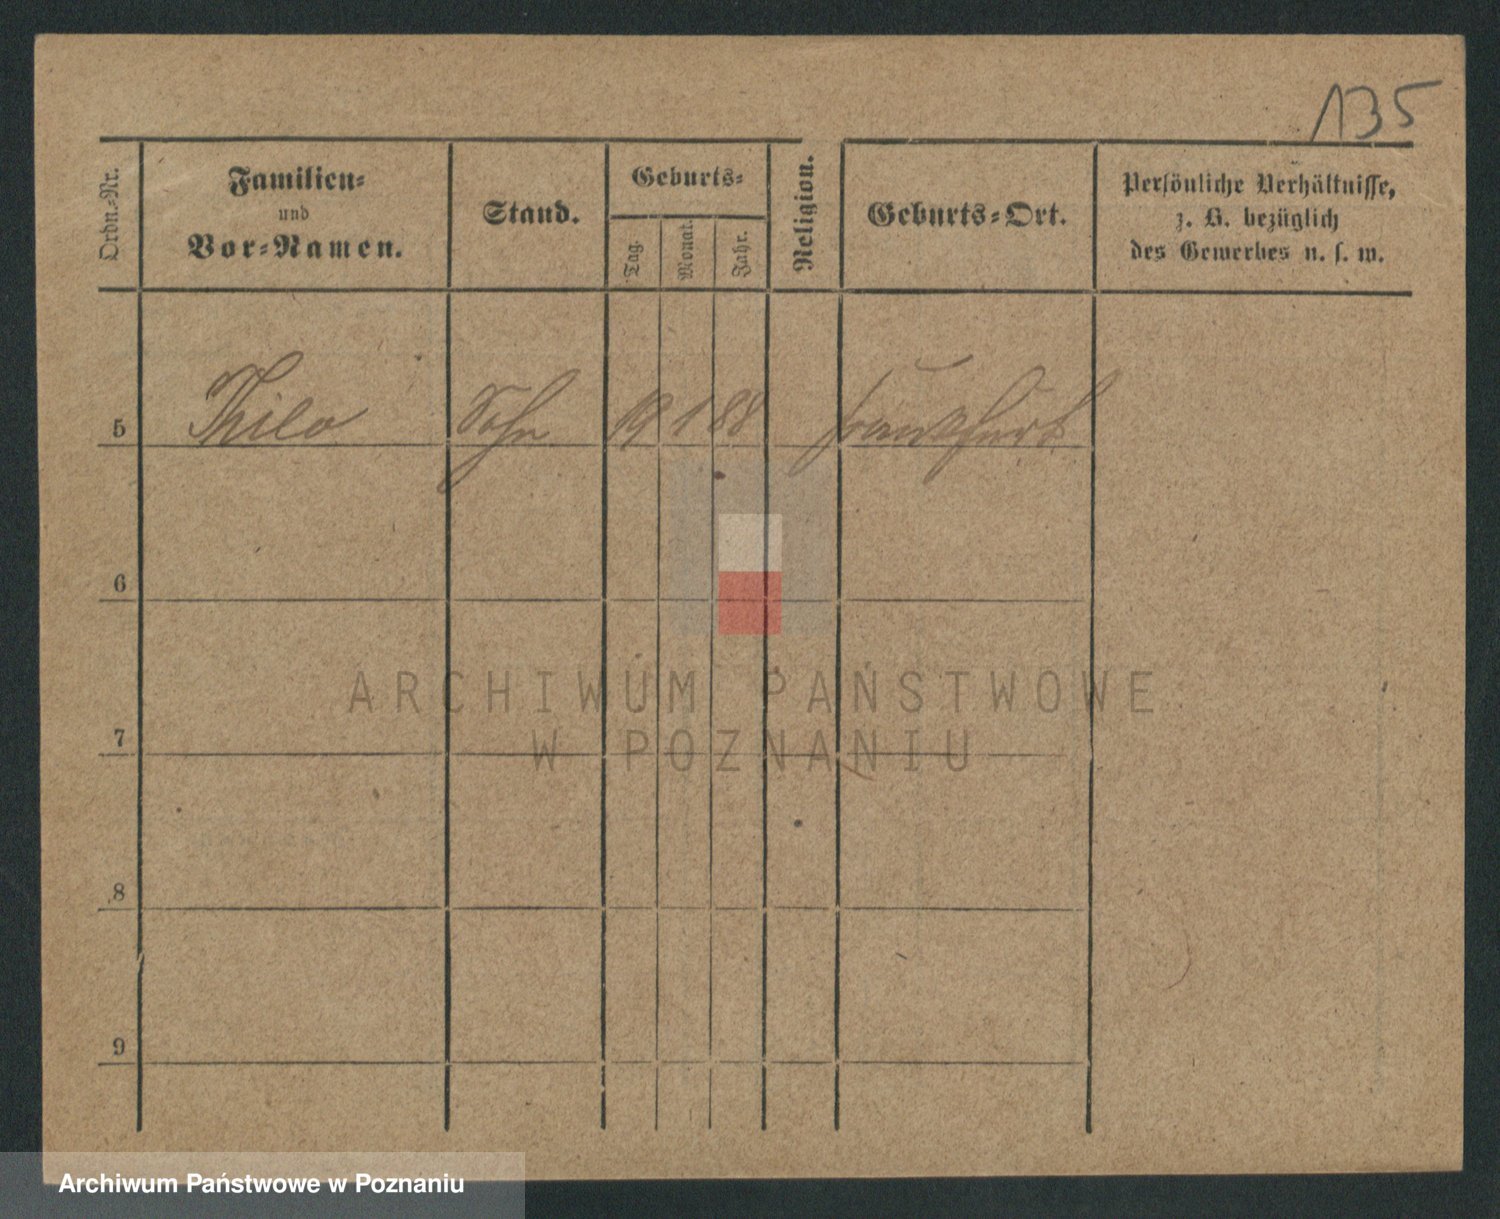 135
Ordn.-Nr.
Familien-
und
Vor-Namen.
Stand.
Geburts-
Tag.
Monat.
Jahr.
Religion.
Geburts-Ort.
Persönliche Verhältnisse,
z. B. bezüglich
des Gewerbes u. s. w.
5 Thilo Sohn 19 1 88 Frankfurt
6
7
8
9
ARCHIWUM PAŃSTWOWE
W POZNANIU
Archiwum Państwowe w Poznaniu